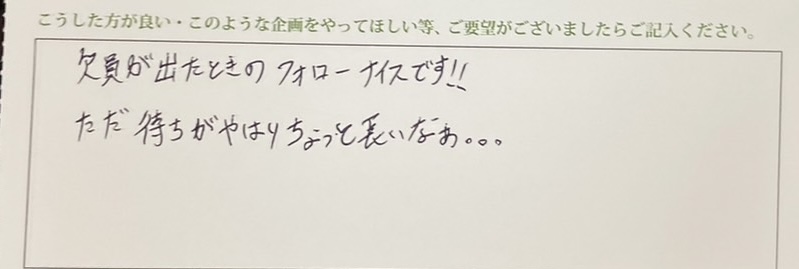 こうした方が良い・このような企画をやってほしい等、ご要望がございましたらご記入ください。
欠員が出たときのフォローナイスです!!
ただ待ちがやはりちょっと長いなぁ。。。